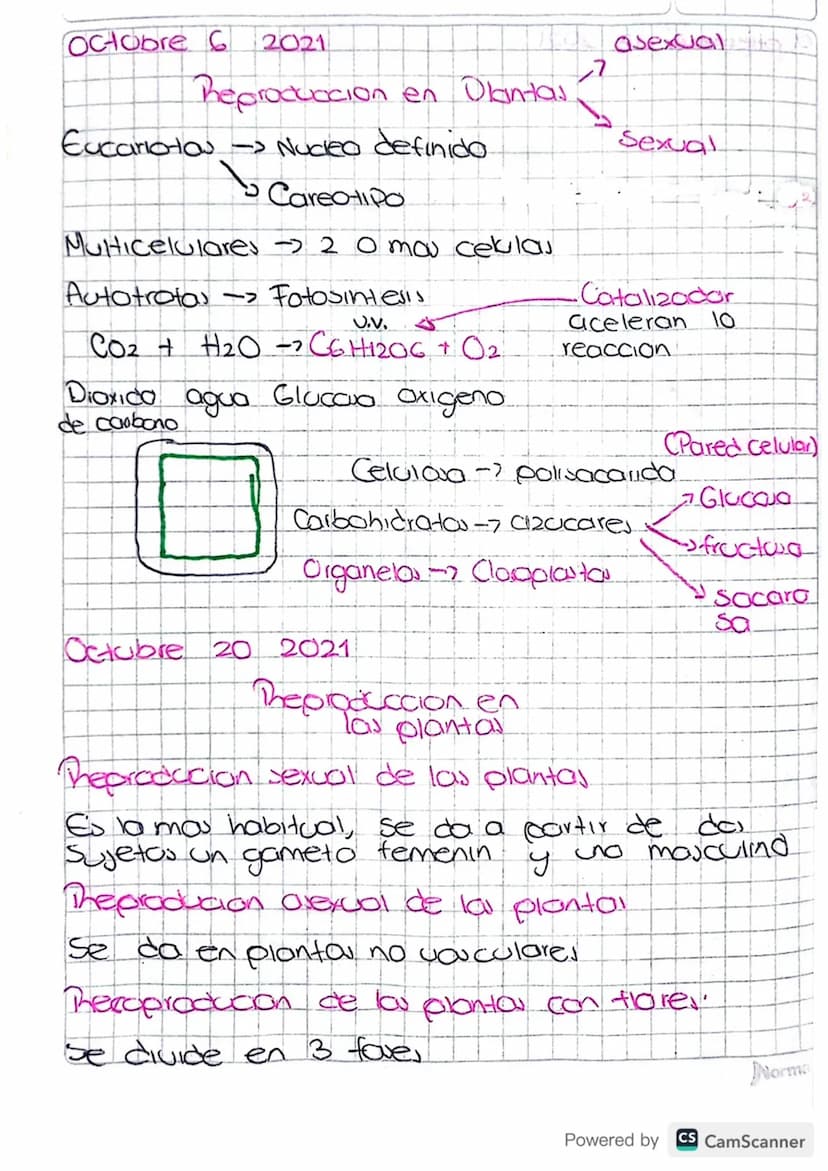 Octubre 6 2021
asexual
Reproduccion en Plantas
sexual
Eucariotas -> Nucleo definido
Careotipo
Multicelulares -> 2 o mas celulas
Autotrofas -> Fotosintesis
Catalizador
aceleran la
reaccion
U.V.
CO2 + H2O -> C6H12O6 + O2
Dioxido agua Glucosa oxigeno
de carbono
(Pared celular)
Celulosa -> polisacarido
Carbohidratos -> azucares
Glucosa
fructosa
socaro
sa
Organelos -> Cloroplastos
Octubre 20 2021
Reproduccion en
las plantas
Reproduccion sexual de las plantas
Es la mas habitual, se da a partir de dos
sujetos un gameto femenin y uno masculino
Reproducion asexual de las plantas
Se da en plantas no vasculares
Recoproducion de las plantas con flores.
se divide en 3 fases
Norma
Powered by CS CamScanner